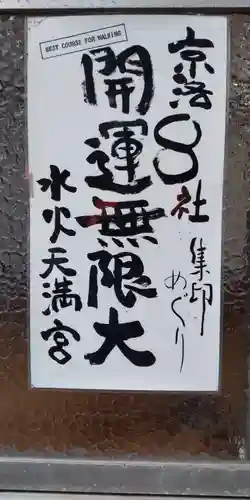 BEST COURSE FOR WALKING
京洛8社
集印めぐり
開運無限大
水火天満宮